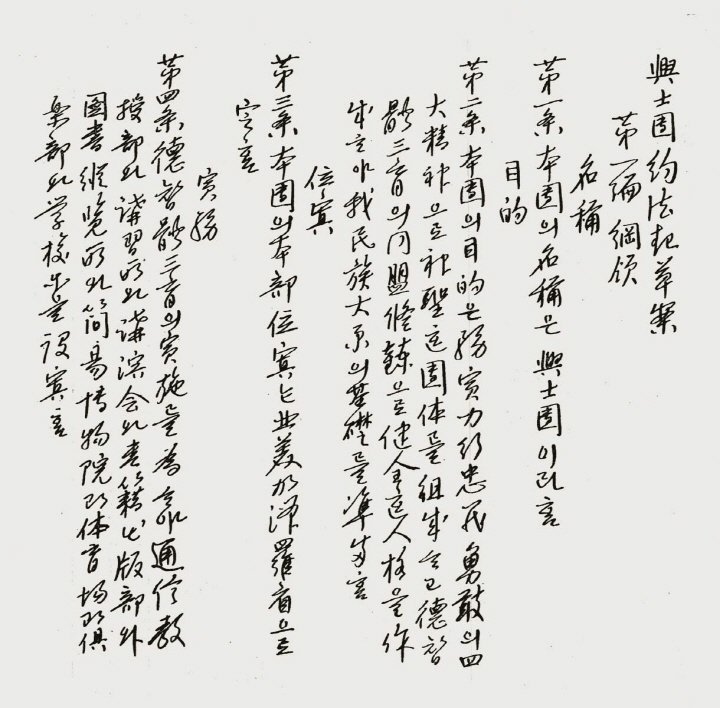 興士團約法起草案
第一編 綱領
名稱
第一条 本團의名稱은興士團이라홈
目的
第二条 本團의目的은務實力行忠義勇敢의四
大精神으로神聖한團体를組成하고德智
體三育의同盟修鍊으로健全한人格을作
成하야我民族大業의基礎를準備홈
位寘
第三条 本團의本部位寘는北美加洲羅省으로
定홈
實務
第四条 德智體三育의實施를為하야通信教
授部와講習所와講演会와書籍出版部와
圖書縱覽所와簡易博物院과体育場과俱
楽部와学校等을設寘홈